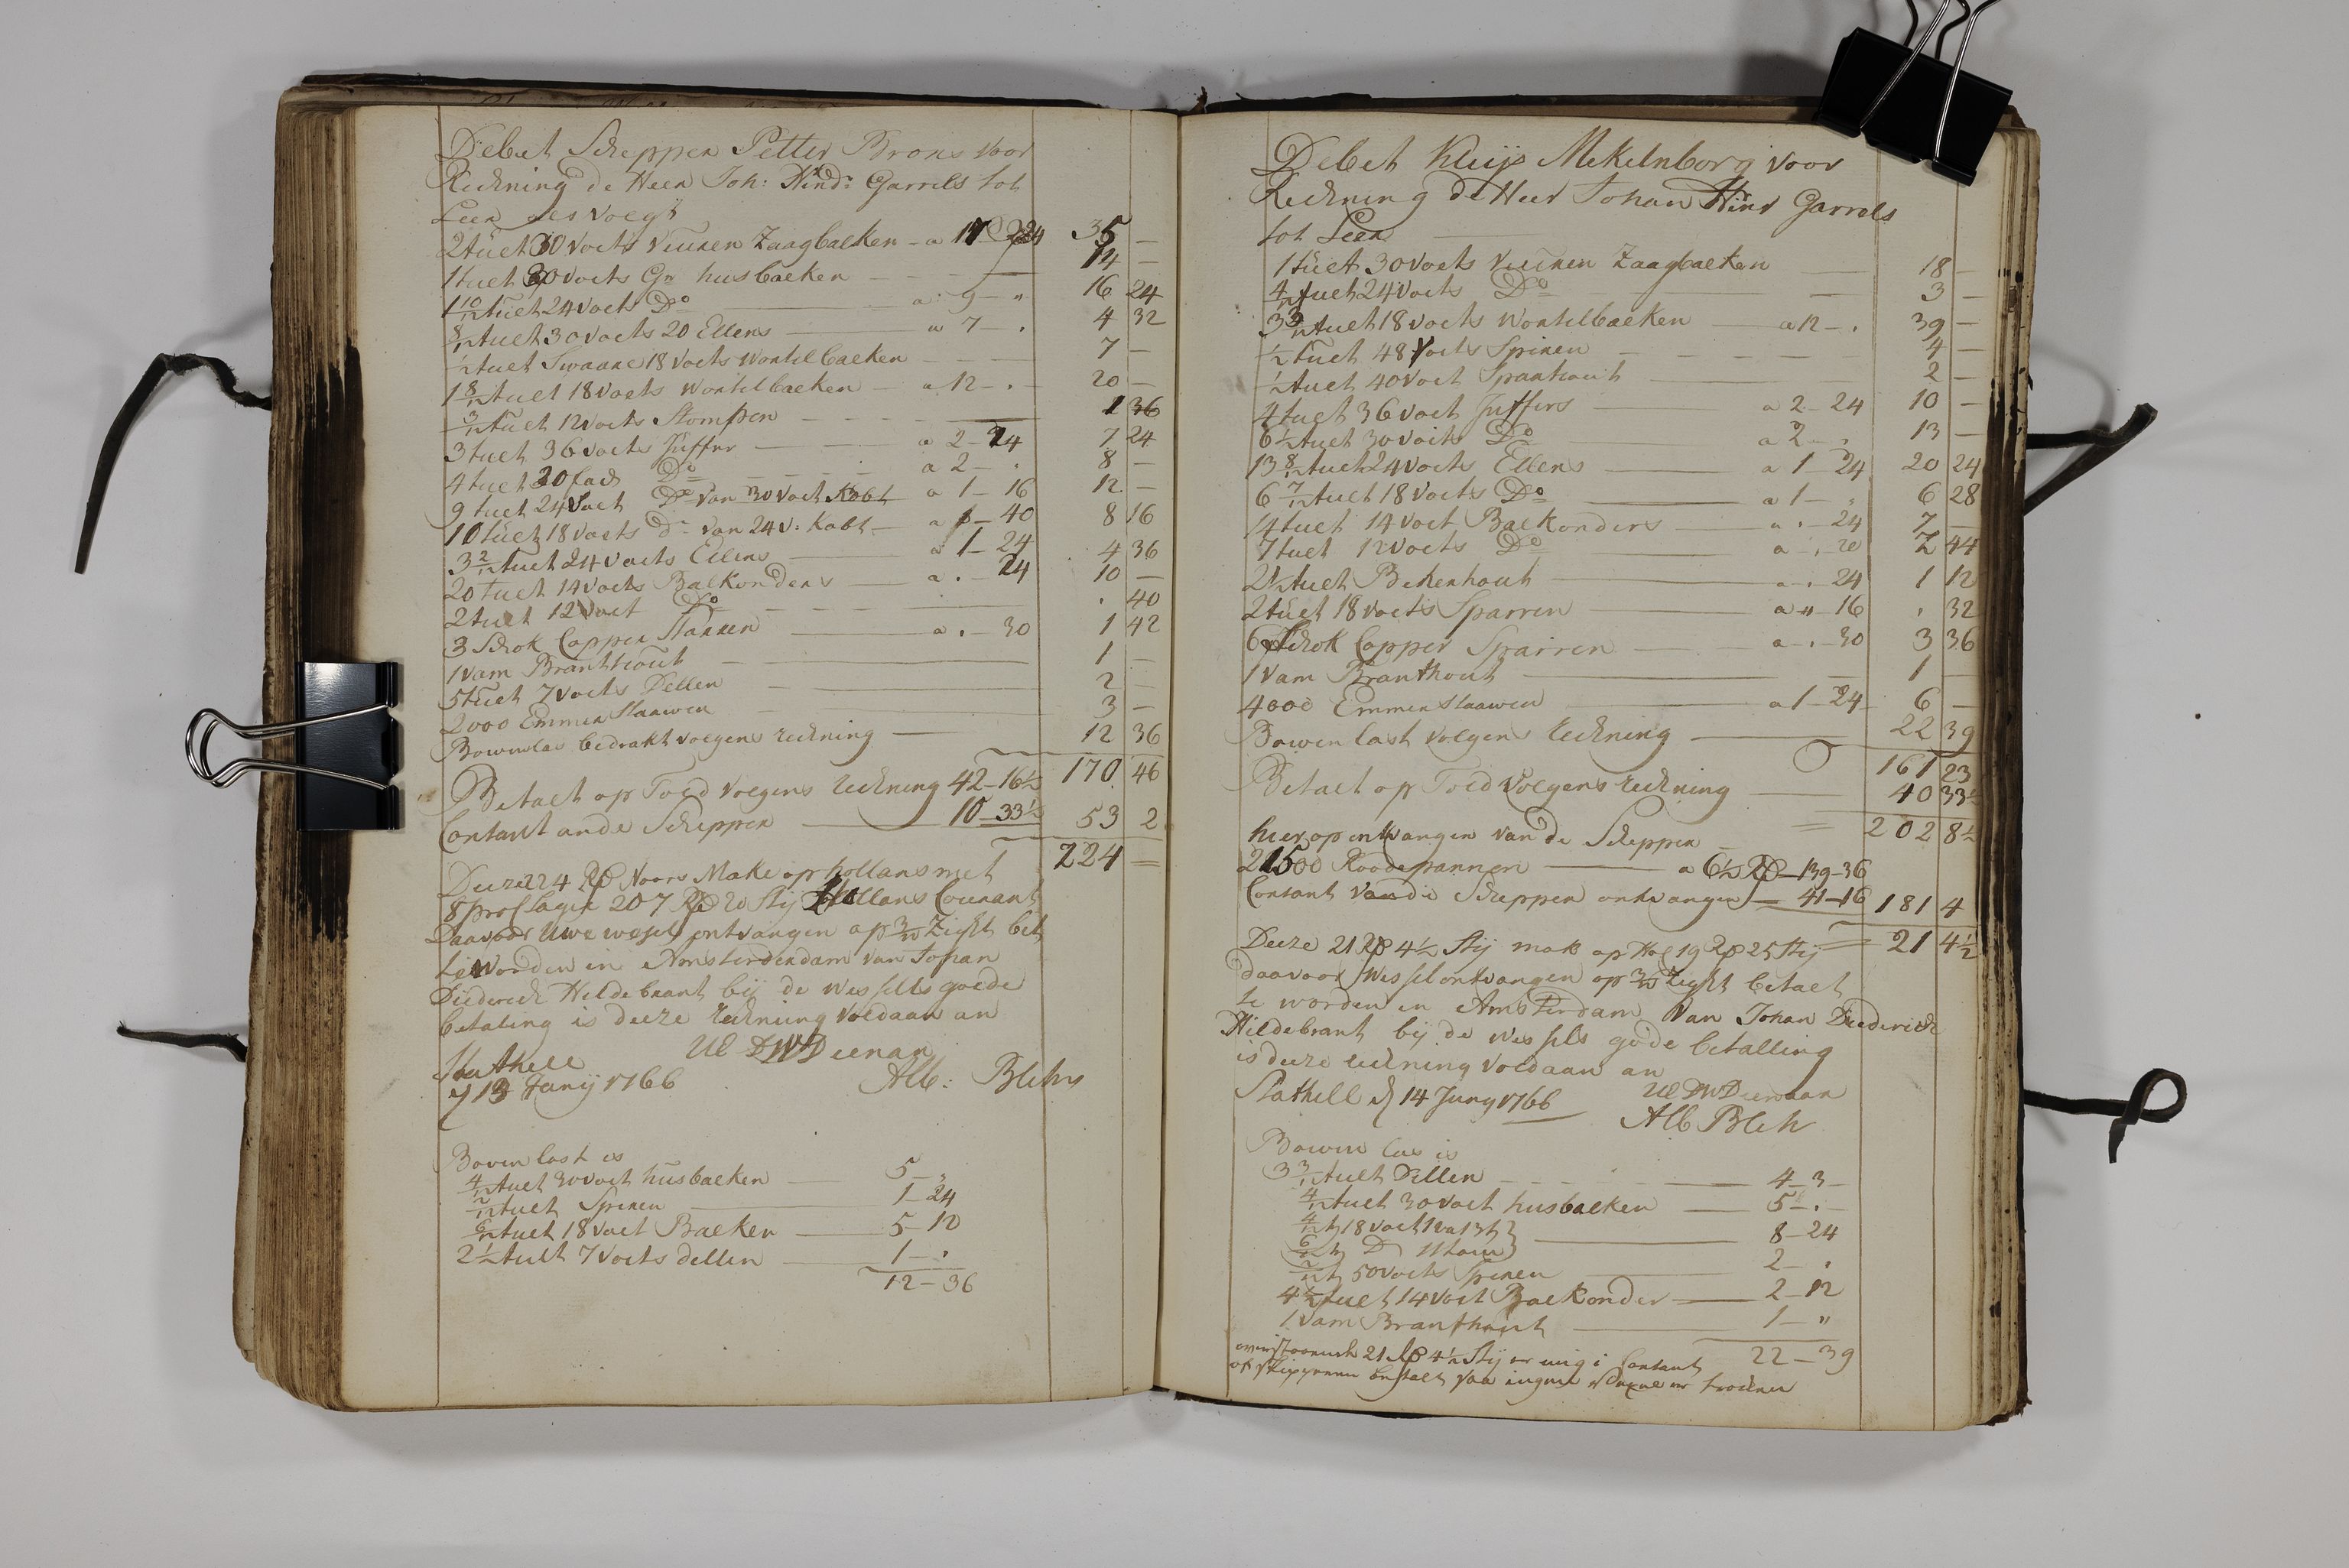 Debet Scheppen Petter Brons voor
Rechning de Heer Joh: Hind: Garrels tot
Leer als volgt
2 tüet 30 voets vuuren Zaagbaelken - a 17 24 35 —
1 tuet 30 voets Gr husbaelken — 14 —
1 10/12 tuet 24 voets Do a 9 — " 16 24
8/12 tuet 30 voets 20 Ellens — a 7 — . 4 32
1/2 tuet Swaare 18 voets wontelbaelken — 7 —
1 8/12 tuet 18 voets wontelbaelken — a 12 — . 20 —
3/12 tuet 12 voets Stompen — 1 36
3 tuet 36 voets Juffer — a 2 — 24 7 24
4 tuet 30 Do a 2 — . 8 —
9 tuet 24 Voet Do van 30 voet Kabt a 1 — 16 12 —
10 tuet 18 voets do van 24 v: Kabt — a — 40 8 16
3 2/12 tuet 24 voets Ellens — a 1 — 24 4 36
20 tuet 14 voets Balkonders — a . — 24 10 —
2 tuet 12 voet Do — . 40
3 Schok Copper Staaken — a . — 30 1 42
1 vam Branthout — 1 —
5 tuet 7 voets Dellen — 2 —
2000 Emmer Staawen — 3 —
Bowenlas bedrakt volgens rechning — 12 36
Betaelt op Toed volgens rechning 42 — 16 1/2 170 46
Contant an de Scheppen — 10 — 33 1/2 53 2
224 =
Deeze 224 Rd Noors Make op hollans met
8 pro C lagie 207 Rd 20 Stij Hollans Courant
Daavoor Uwe wessel ontvangen op 3/m Zight bet
te worden in Amsterdendam van Johan
Diederich Hildebrant bij de wessels goede
betaling is deeze rechning voldaan an
Stathell UE DWDienaar
d 13 Junij 1766 Alb: Blehr
Boven last is
4/12 tuet 30 voet husbaelken — 5 — ,
2/12 tuet Spieren — 1 — 24
6/12 tuet 18 voet Baelken — 5 — 12
2 1/2 tuet 7 voets dellen — 1 — .
12 — 36
Debet Kleijs Mekelnborg voor
Rechning de Heer Johan Hinr Garrels
tot Leer
1 tüet 30 voets vuuren Zaagbaelken — 18 —
4/12 tuet 24 voets Do — 3 —
3 3/12 tuet 18 voets wontelbaelken — a 12 — . 39 —
1/2 tuet 48 voets Spieren — 4 —
1/2 tuet 40 voet Spaarhout — 2 —
4 tuet 36 voet Juffers — a 2 — 24 10 —
6 1/2 tuet 30 voets Do a 2 — . 13 —
13 8/12 tuet 24 voets Ellens — a 1 — 24 20 24
6 7/12 tuet 18 voets Do a 1 — . 6 28
14 tuet 14 voet Balkonders — a . — 24 7 —
7 tuet 12 voets Do a . — 20 2 44
2 1/2 tuet Bekenhout — a . — 24 1 12
2 tuet 18 voets Sparren — a " — 16 . 32
6 Schok Copper Sparren — a . — 30 3 36
1 Vam Branthout — 1 —
4000 Emmer Staawen — a 1 — 24 6 —
Bowen last volgens rechning — 22 39
161 23
Betaelt op Toed volgens rechning — 40 33 1/2
202 8 1/2
hier op entvangen van de Scheppen
21500 Roodepannen — a 6 1/2 Rd — 139-36
Contant van die Scheppen ontvangen — 41-16 181 4
21 4 1/2
Deeze 21 Rd 4 1/2 Stij mak op Hol 19 Rd 25 Stij
daavoor wessel ontvangen op 3/m Zight betaelt
te worden in Amsterdam van Johan Diederich
Hildebrant bij de wessels gode betalling
is deeze rechning voldaan an
Stathell d 14 Juny 1766 UE DWDienaar
Alb Blehr
Bowen las is
3 3/12 tuelt Dellen — 4 — 3 —
4/12 tuelt 30 voet husbaelken — 5 — . —
4/12 t 18 voet 12 a 13 t }
6/12 t D } — 8 — 24
2/12 t 50 voets Spieren — 2 — .
4 1/2 tuet 14 voet Balkonder — 2 — 12
1 Vam Branthout — 1 — "
22 — 39
21 Rd 4 1/2 Stij er mig i Contant